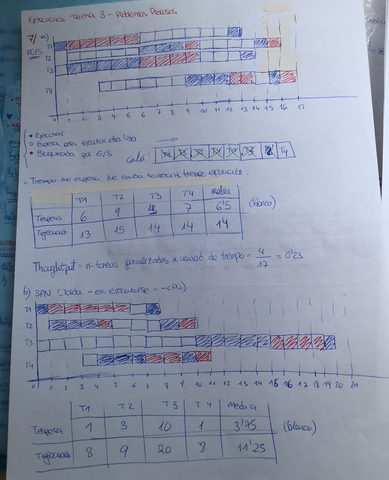 Ejercicios Tema 3 - Problemas Planos
7/ a)
FCFS
T1
T2
T3
T4
0 1 2 3 4 5 6 7 8 9 10 11 12 13 14 15 16 17
• Ejecutar
• Espera para ejecutar otra
• Bloqueado por E/S
cola: T4
- Tiempo de espera de cada tarea y tiempo
T1 T2 T3 T4 Media
Tespera 6 9 4 7 6'5 (blanco)
Tejecución 13 15 14 14 14
Thoughtput = n-tareas finalizadas x unidad de tiempo = 4/17 = 0'23
b) SPN
T1
T2
T3
T4
0 1 2 3 4 5 6 7 8 9 10 11 12 13 14 15 16 17 18 19 20 21
T1 T2 T3 T4 Media
Tespera 1 3 10 1 3'75 (blanco)
Tejecución 8 9 20 8 11'25